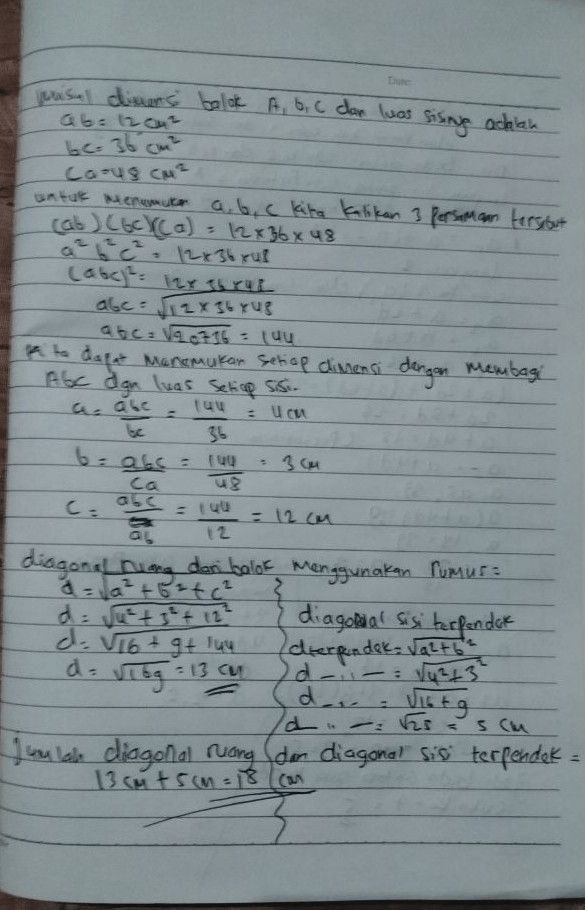 Date:
misal dimens balok A, b, c dan luas sisinya adalah
ab = 12 cm²
bc = 36 cm²
ca = 48 cm²
untuk menemukan a, b, c kita kalikan 3 persamaan tersebut
(ab)(bc)(ca) = 12 x 36 x 48
a² b² c² = 12 x 36 x 48
(abc)² = 12 x 36 x 48
abc = √12 x 36 x 48
abc = √20736 = 144
kita dapat menemukan setiap dimensi dengan membagi
Abc dgn luas setiap sisi.
a = abc/bc = 144/36 = 4 cm
b = abc/ca = 144/48 = 3 cm
c = abc/ab = 144/12 = 12 cm
diagonal ruang dari balok menggunakan rumus =
d = √a² + b² + c²
d = √4² + 3² + 12²
d = √16 + 9 + 144
d = √169 = 13 cm
diagonal sisi terpendek
dterpendek = √a² + b²
d — ,, — = √4² + 3²
d - ,, - = √16 + 9
d — ,, — = √25 = 5 cm
Jumlah diagonal ruang dan diagonal sisi terpendek =
13 cm + 5 cm = 18 cm